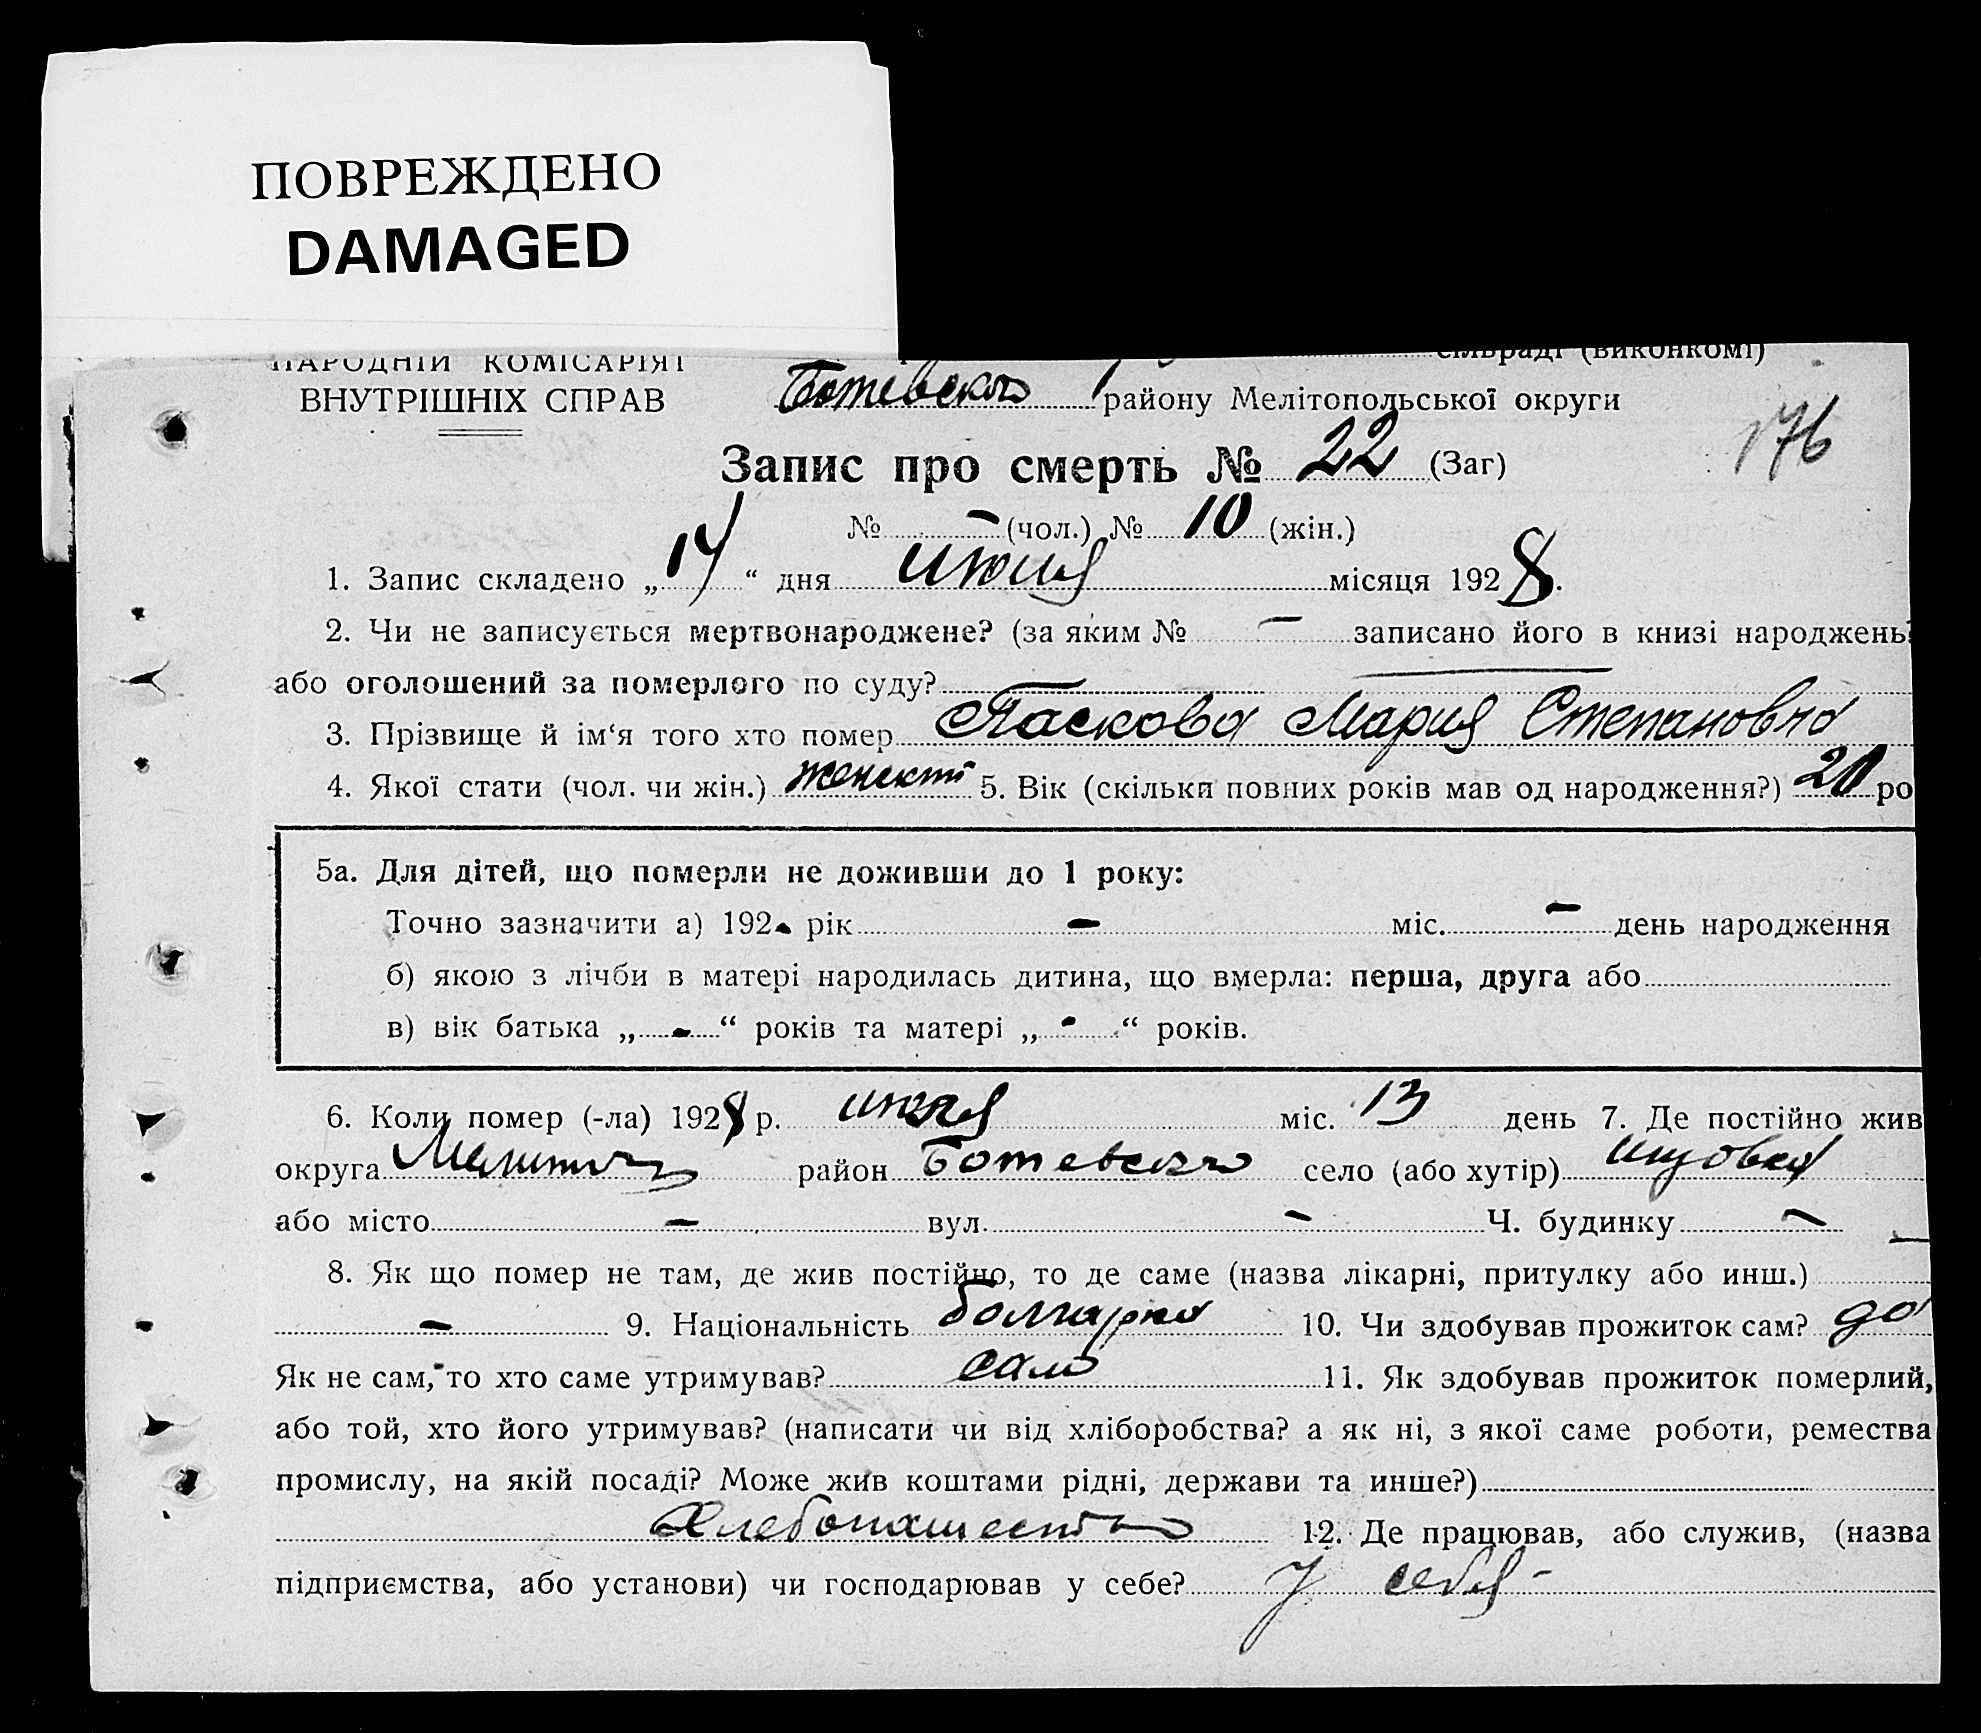 ПОВРЕЖДЕНО
DAMAGED
НАРОДНІЙ КОМІСАРІЯТ сільраді (виконкомі)
ВНУТРІШНІХ СПРАВ Ботевского району Мелітопольської округи
176
Запис про смерть № 22 (Заг)
№ - (чол.) № 10 (жін.)
1. Запис складено „14“ дня месяця 1928.
2. Чи не записується мертвонароджене? (за яким № - записано його в книзі народжень?
або оголошений за померлого по суду? —
3. Прізвище й ім‘я того хто помер Паскова Мария Степановна
4. Якої стати (чол. чи жін.) 5. Вік (скільки повних років мав од народження?) ро
5а. Для дітей, що померли не доживши до 1 року:
Точно зазначити а) 192- рік - міс. - день народження
б) якою з лічби в матері народилась дитина, що вмерла: перша, друга або
в) вік батька „-“ років та матері „-“ років.
6. Коли помер (-ла) 1928 р. міс. 13 день 7. Де постійно жив
округа район Ботевского село (або хутір)
або місто - вул. - Ч. будинку -
8. Як що помер не там, де жив постійно, то де саме (назва лікарні, притулку або инш.) -
- 9. Національність болгарка 10. Чи здобував прожиток сам? да
Як не сам, то хто саме утримував? сама 11. Як здобував прожиток померлий,
або той, хто його утримував? (написати чи від хліборобства? а як ні, з якої саме роботи, ремества
промислу, на якій посаді? Може жив коштами рідні, держави та инше?)
Хлебопашество 12. Де працював, або служив, (назва
підприємства, або установи) чи господарював у себе? у себя -